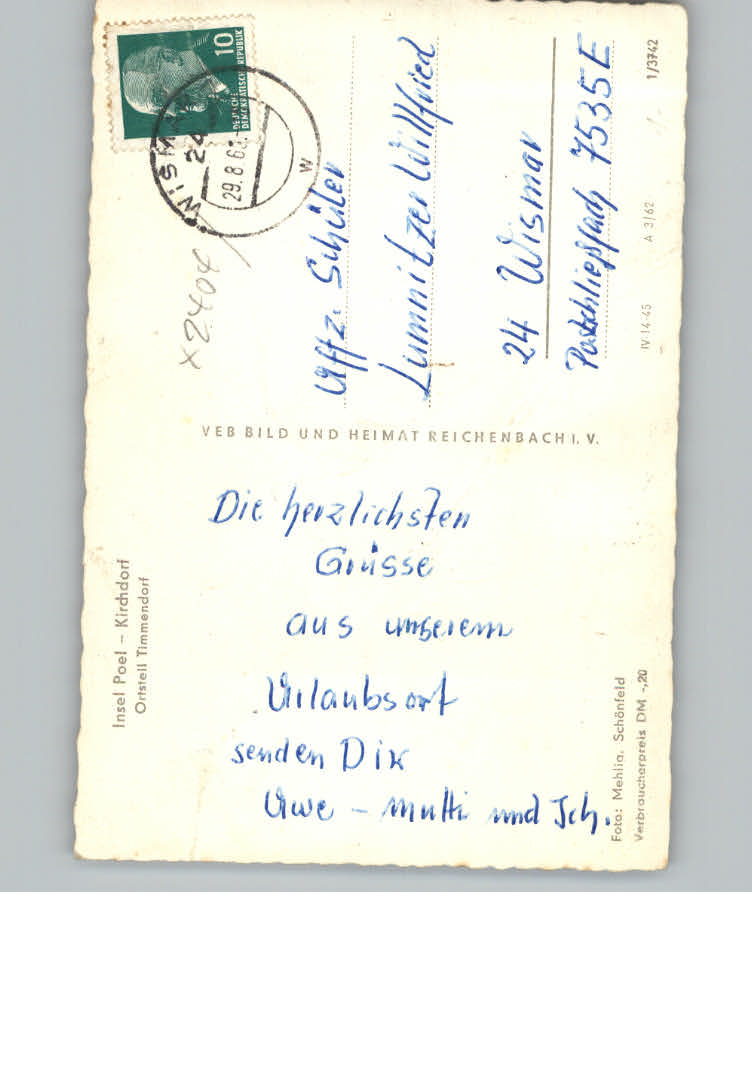 Insel Poel – Kirchdorf
Ortsteil Timmendorf
Die herzlichsten
Grüsse
aus unserem
Urlaubsort
senden Dir
Uwe – Mutti und Ich.
Foto: Mehlig, Schönfeld
Verbraucherpreis DM -,20
VEB BILD UND HEIMAT REICHENBACH I. V.
10
DEUTSCHE
DEMOKRATISCHE REPUBLIK
24
29.8.6
W
x2404
Uffz. Schüler
Lumnitzer Willfried
24 Wismar
Postschließfach 7535E
IV-14-45 A 3/62 1/3742